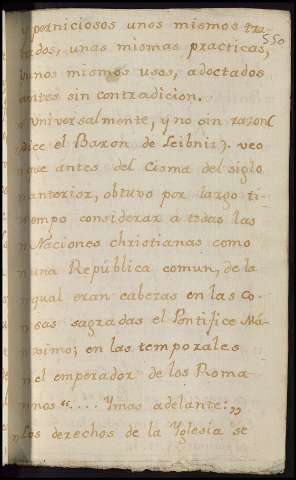 y perniciosos unos mismos tra-
550
tados, unas mismas practicas,
y unos mismos usos, adoctados
antes sin contradicion.
Universalmente, y no sin razon (
dice el Baron de Leibniz). veo
que antes del Cisma del siglo
anterior, obtuvo por largo ti-
empo considerar a todas las
Naciones christianas como
una República comun, de la
qual eran cabezas en las co-
sas sagradas el Pontifice Má-
ximo; en las temporales
el emperador de los Roma-
nos“.... Ymas adelante: „
Los derechos de la Yglesia se